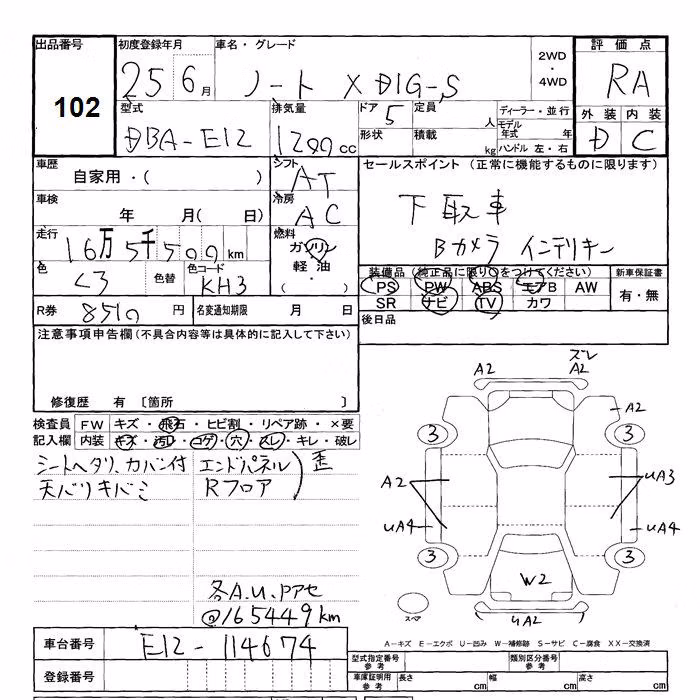 出品番号 初度登録年月 車名・グレード 2WD・4WD 評価点
102 25 6月 ノート X DIG-S RA
型式 排気量 ドア 定員 人 ディーラー・並行 外装 内装
DBA-E12 1200cc 5 形状 積載 kg モデル年式 年 ハンドル 左・右 D C
車歴 シフト セールスポイント (正常に機能するものに限ります)
自家用・( ) AT
車検 冷房 下取車
年 月( 日) AC
走行 燃料 Bカメラ インテリキー
16万5千500km ガソリン
色 色替 色コード 軽油・ 装備品 (純正品に限り○をつけてください) 新車保証書
クロ KH3 PS PW ABS エアB AW 有・無
R券 8510円 名変通知期限 月 日 SR ナビ TV カワ
注意事項申告欄(不具合内容等は具体的に記入して下さい) 後日品
修復歴 有 〔箇所 〕
検査員 FW キズ・飛石・ヒビ割・リペア跡・×要
記入欄 内装 キズ・汚れ・コゲ・穴・スレ・キレ・破レ
シートヘタリ、カバン付 エンドパネル 歪
天バリキバミ Rフロア
各A.U.Pアセ
@165449km
車台番号 E12-114674
登録番号
A2 ズレ
A2
A2
3 3
A2 UA3
UA4 UA4
3 3
W2
スペア UA2
A-キズ E-エクボ U-凹み W-補修跡 S-サビ C-腐食 XX-交換済
型式指定番号 参考 類別区分番号 参考
車庫証明用 参考 長さ cm 幅 cm 高さ cm